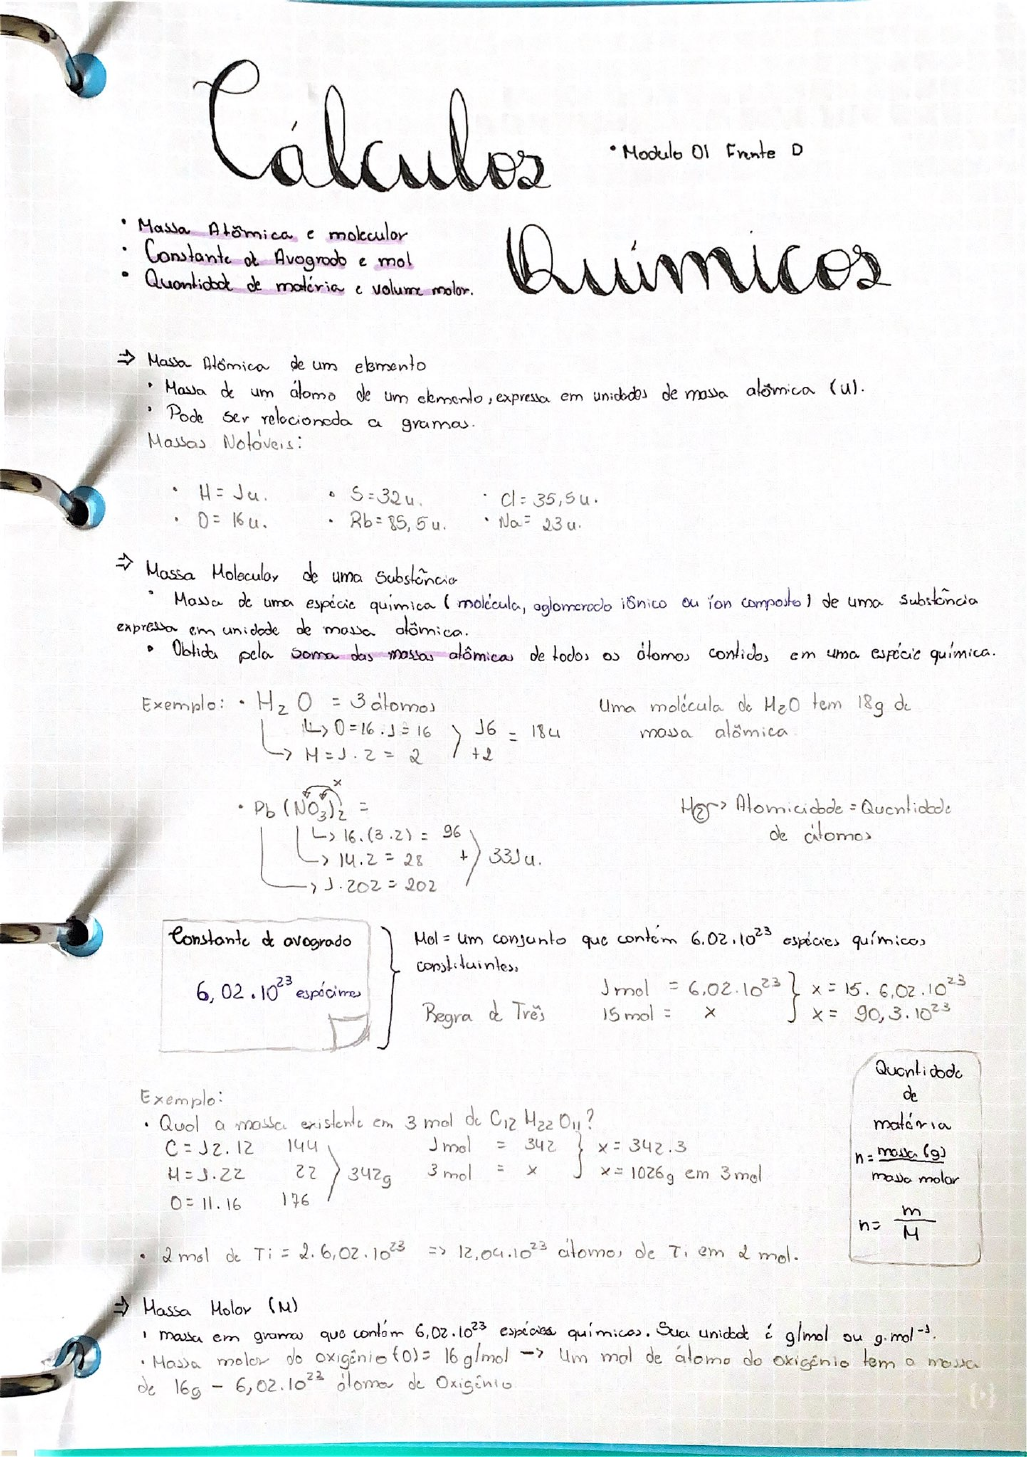 Cálculos
• Modulo 01 Frente D
Químicos
• Massa Atômica e molecular
• Constante de Avogrado e mol
• Quantidade de matéria e volume molar.
⇒ Massa Atômica de um elemento
• Massa de um átomo de um elemento, expressa em unidades de massa atômica (u).
• Pode ser relacionada a gramas.
Massas Notáveis:
• H = 1u. • S = 32u. • Cl = 35,5u.
• O = 16u. • Rb = 85,5u. • Na = 23u.
⇒ Massa Molecular de uma Substância
• Massa de uma espécie química (molécula, aglomerado iônico ou íon composto) de uma substância
expressa em unidade de massa atômica.
• Obtida pela soma das massas atômicas de todos os átomos contidos em uma espécie química.
Exemplo: • H₂O = 3 átomos
↳ O = 16 . 1 = 16
↳ H = 1 . 2 = 2
16 + 2 = 18u
Uma molécula de H₂O tem 18g de
massa atômica
• Pb(NO₃)₂ =
x
↳ 16.(3.2) = 96
↳ 14.2 = 28
↳ 1.202 = 202
+ 331u.
H② → Atomicidade = Quantidade
de átomos
Constante de avogrado
6,02.10²³ espécimes
Mol = um conjunto que contém 6.02.10²³ espécies químicas
constituintes.
Regra de Três
1mol = 6,02.10²³ } x = 15. 6,02.10²³
15mol = x } x = 90,3.10²³
Quantidade
de
matéria
n = massa (g)
massa molar
n = m
M
Exemplo:
• Qual a massa existente em 3 mol de C₁₂H₂₂O₁₁?
C = 12.12 144 1mol = 342 } x = 342.3
H = 1.22 22 342g 3 mol = x } x = 1026g em 3 mol
O = 11.16 176
• 2 mol de Ti = 2.6,02.10²³ => 12,04.10²³ átomos de Ti em 2 mol.
⇒ Massa Molar (M)
• massa em gramas que contém 6,02.10²³ espécies químicas. Sua unidade é g/mol ou g.mol⁻¹.
• Massa molar do oxigênio (O) = 16g/mol → Um mol de átomo do oxigênio tem a massa
de 16g - 6,02.10²³ átomos de Oxigênio